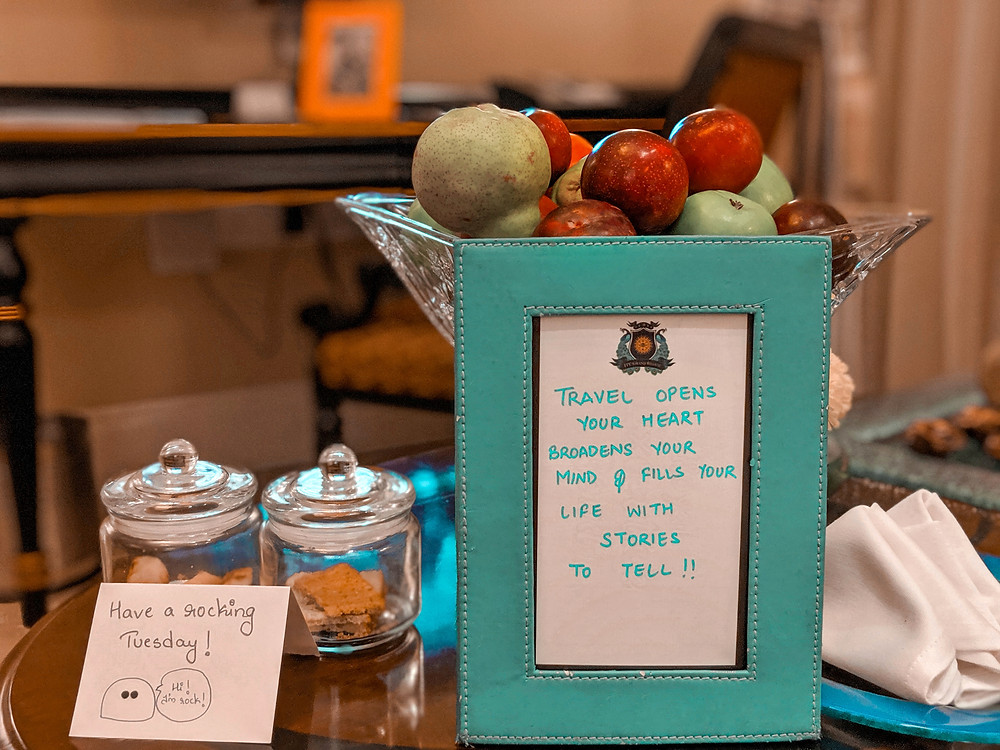 TRAVEL OPENS
YOUR HEART
BROADENS YOUR
MIND & FILLS YOUR
LIFE WITH
STORIES
TO TELL!!
Have a rocking
Tuesday!
Hi!
Am rock!